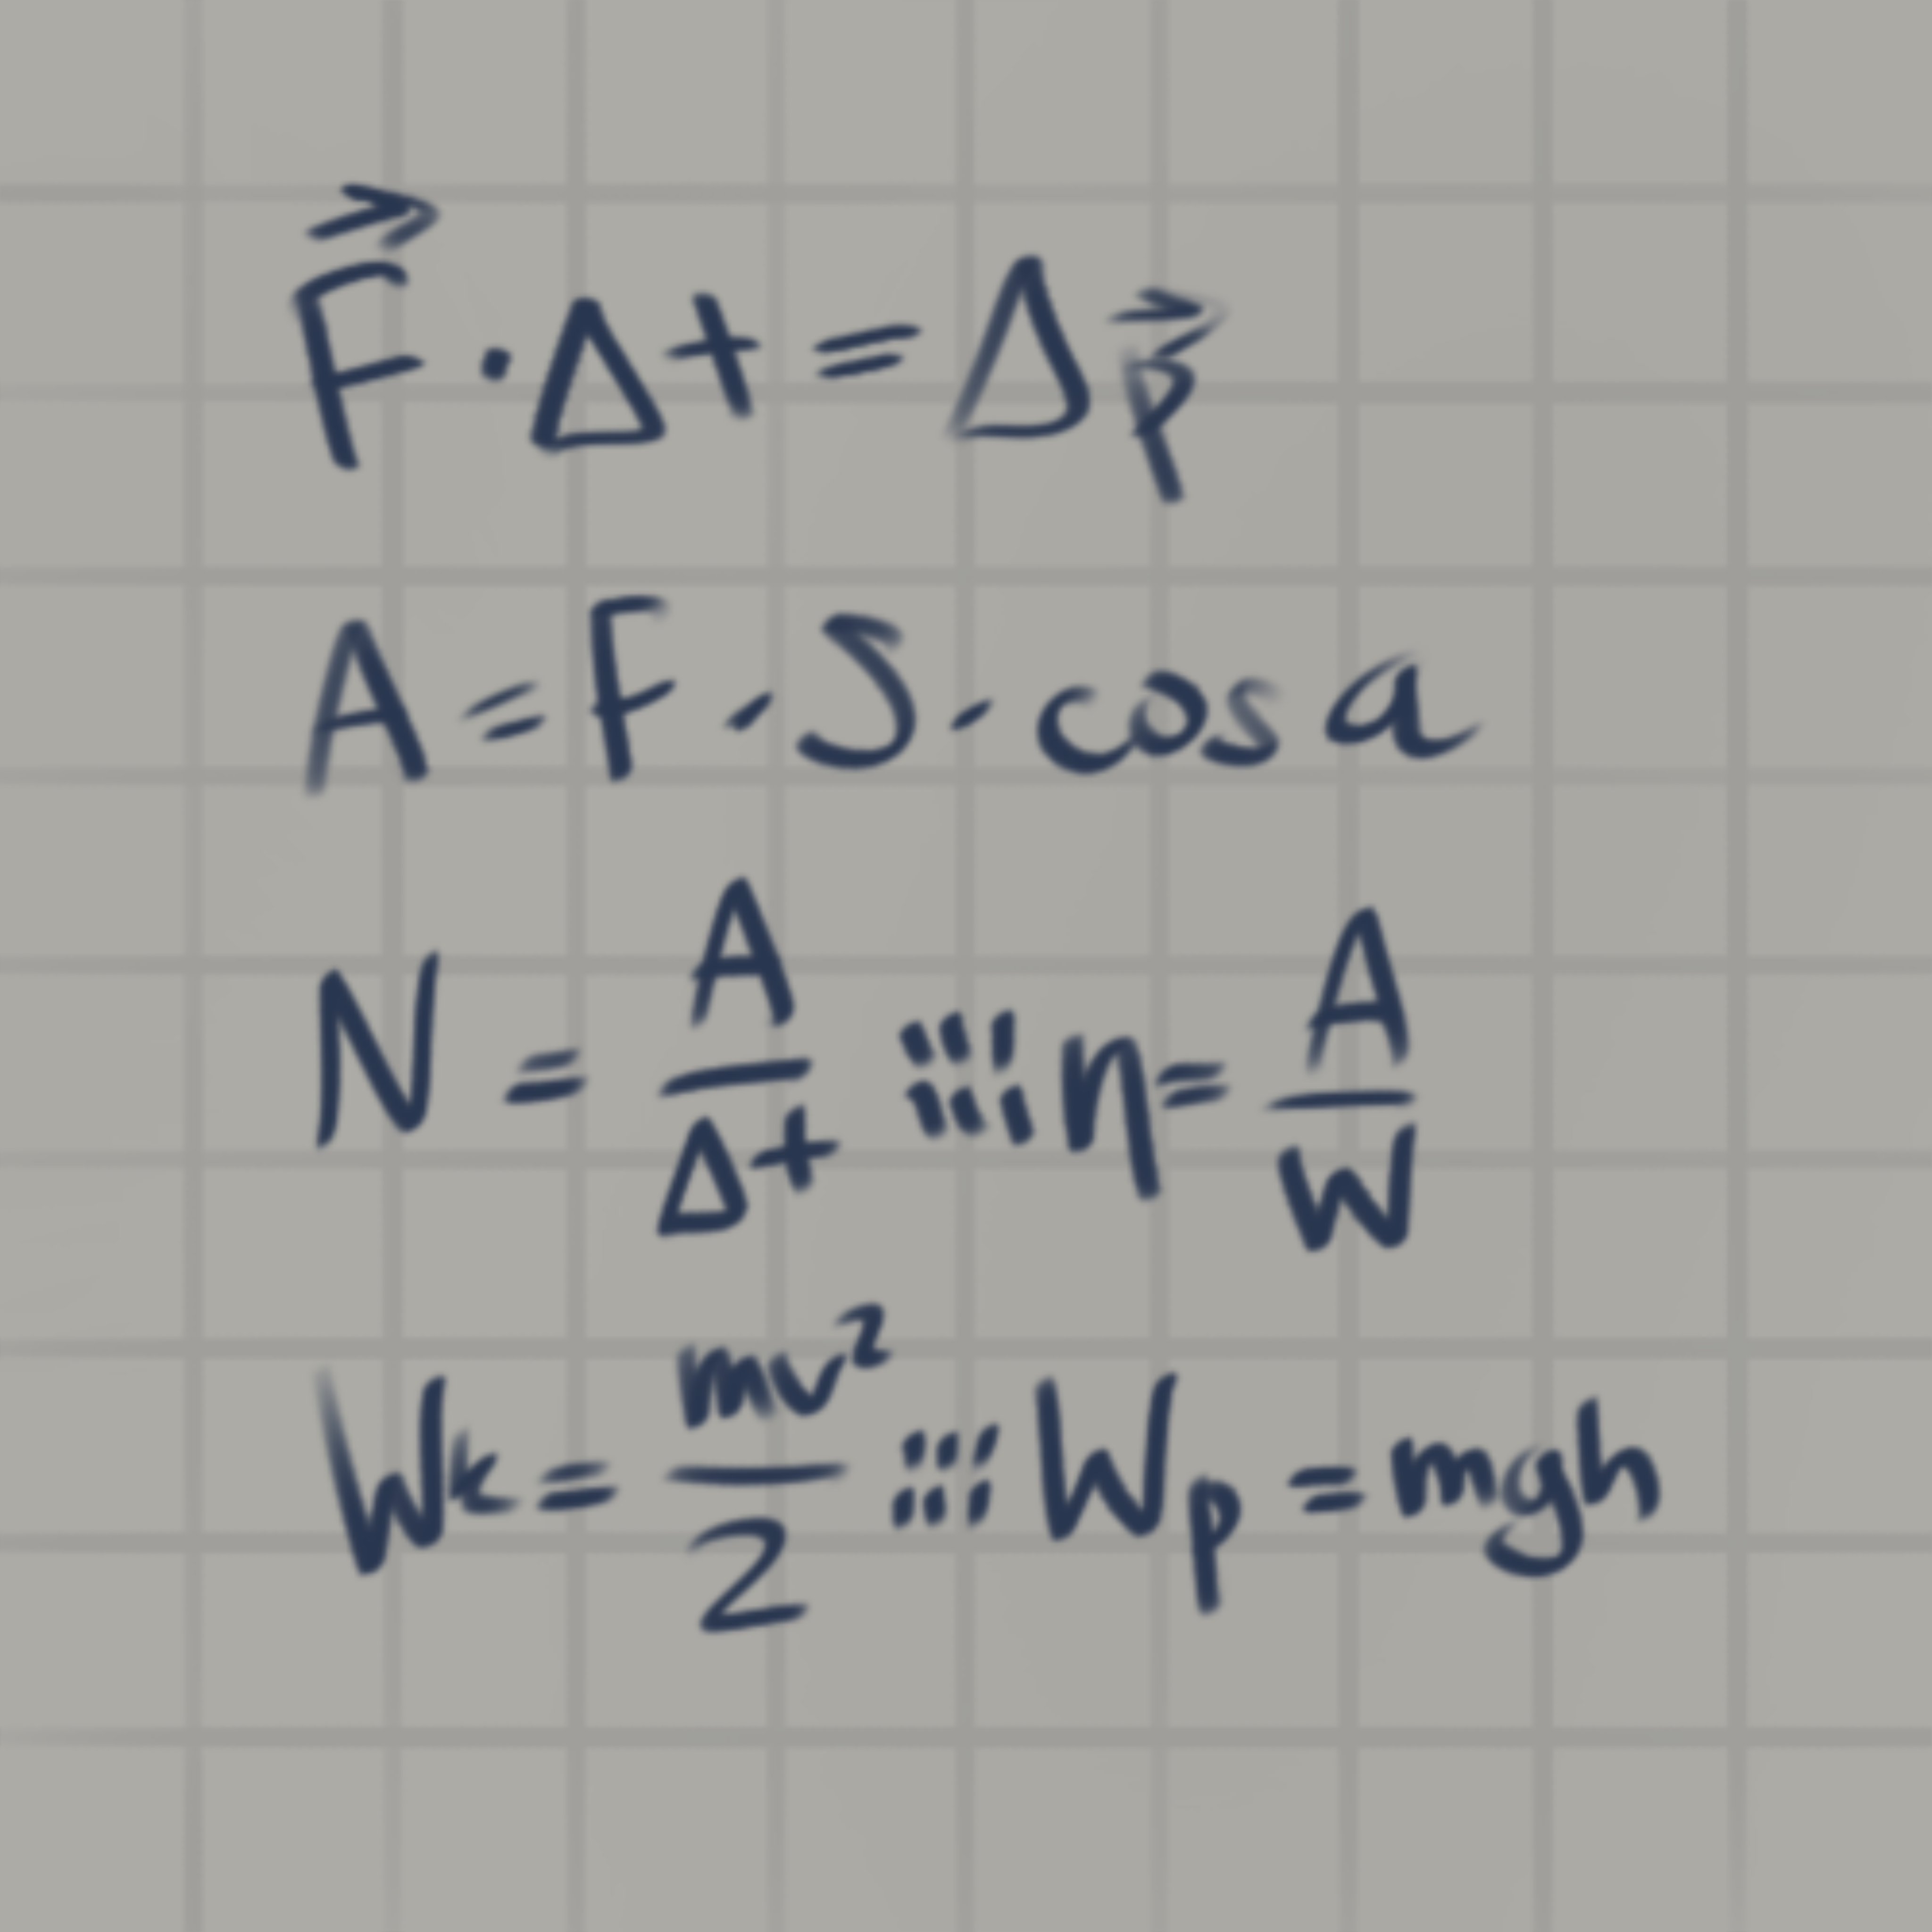 F⃗ · Δt = Δp⃗
A = F · S · cos a
N = A/Δt ⫶⫶⫶ η = A/W
Wk = mv²/2 ⫶⫶⫶ Wp = mgh